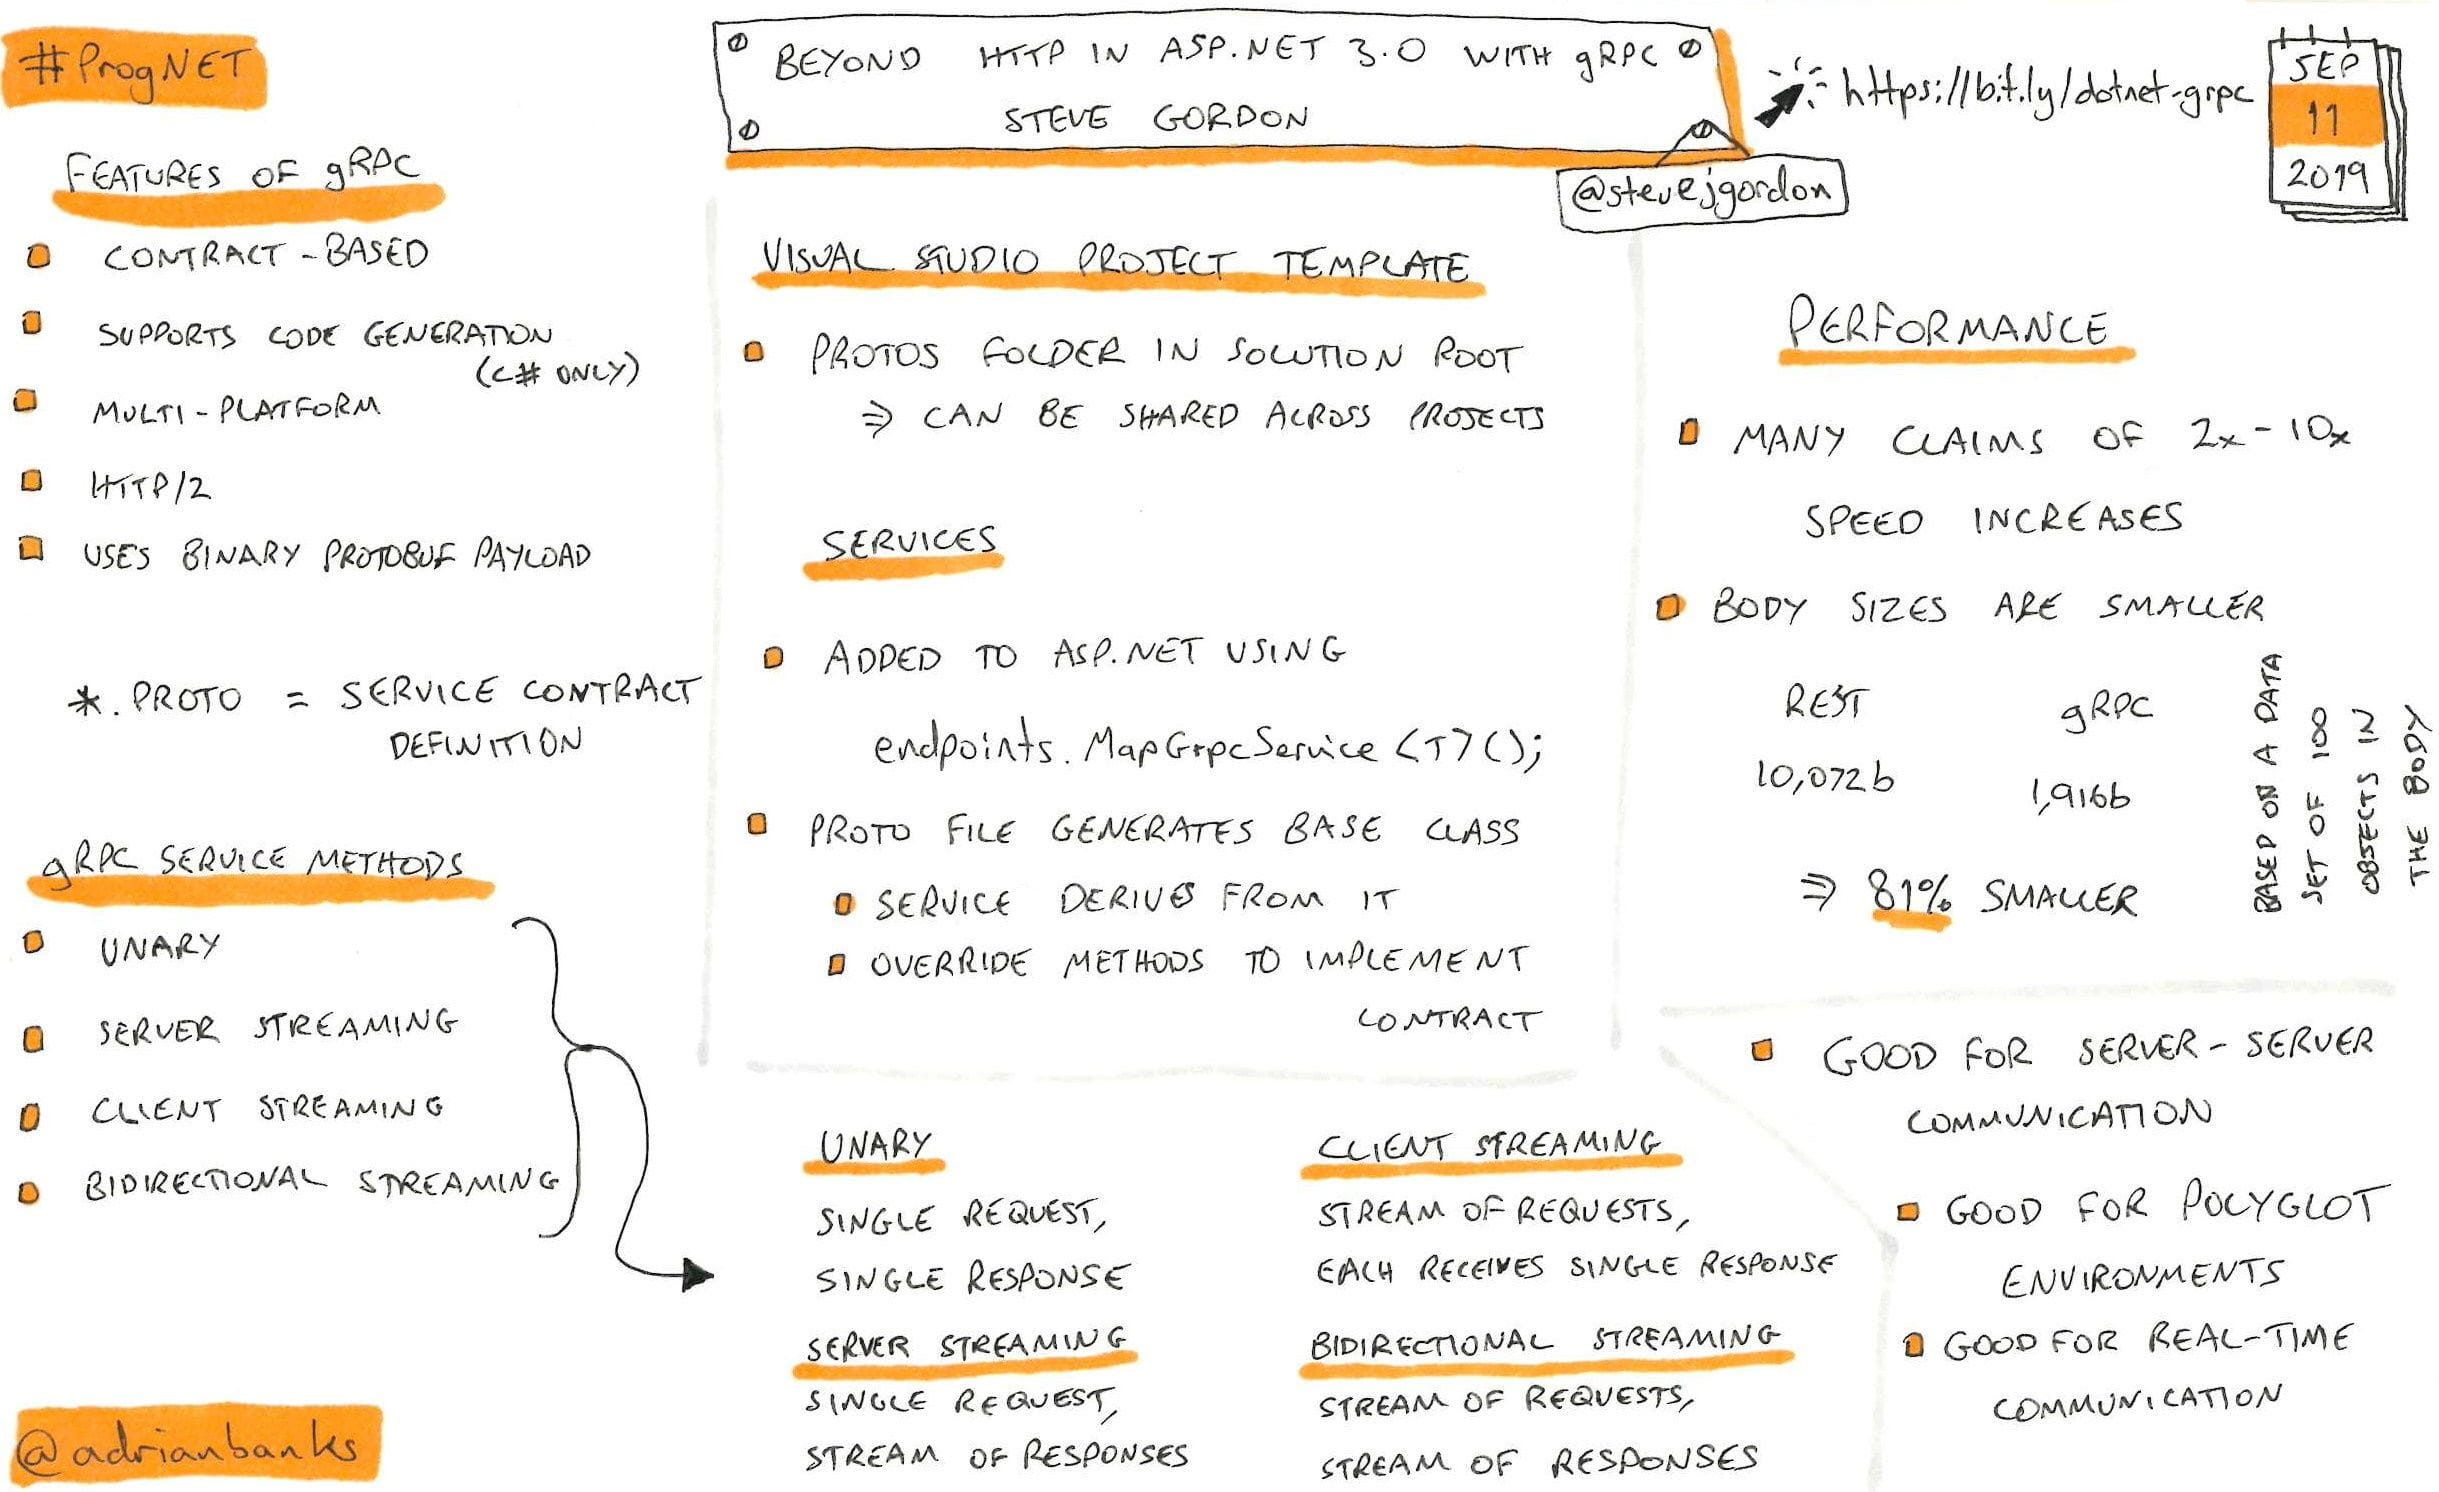 #ProgNET
BEYOND HTTP IN ASP.NET 3.0 WITH gRPC
STEVE GORDON
@stevejgordon
https://bit.ly/dotnet-grpc
SEP
11
2019
FEATURES OF gRPC
CONTRACT-BASED
SUPPORTS CODE GENERATION
(C# ONLY)
MULTI-PLATFORM
HTTP/2
USES BINARY PROTOBUF PAYLOAD
*.PROTO = SERVICE CONTRACT
DEFINITION
gRPC SERVICE METHODS
UNARY
SERVER STREAMING
CLIENT STREAMING
BIDIRECTIONAL STREAMING
@adrianbanks
VISUAL STUDIO PROJECT TEMPLATE
PROTOS FOLDER IN SOLUTION ROOT
⇒ CAN BE SHARED ACROSS PROJECTS
SERVICES
ADDED TO ASP.NET USING
endpoints.MapGrpcService<T>();
PROTO FILE GENERATES BASE CLASS
SERVICE DERIVES FROM IT
OVERRIDE METHODS TO IMPLEMENT
CONTRACT
UNARY
SINGLE REQUEST,
SINGLE RESPONSE
SERVER STREAMING
SINGLE REQUEST,
STREAM OF RESPONSES
CLIENT STREAMING
STREAM OF REQUESTS,
EACH RECEIVES SINGLE RESPONSE
BIDIRECTIONAL STREAMING
STREAM OF REQUESTS,
STREAM OF RESPONSES
PERFORMANCE
MANY CLAIMS OF 2x-10x
SPEED INCREASES
BODY SIZES ARE SMALLER
REST gRPC
10,072b 1,916b
⇒ 81% SMALLER
BASED ON A DATA
SET OF 100
OBJECTS IN
THE BODY
GOOD FOR SERVER-SERVER
COMMUNICATION
GOOD FOR POLYGLOT
ENVIRONMENTS
GOOD FOR REAL-TIME
COMMUNICATION